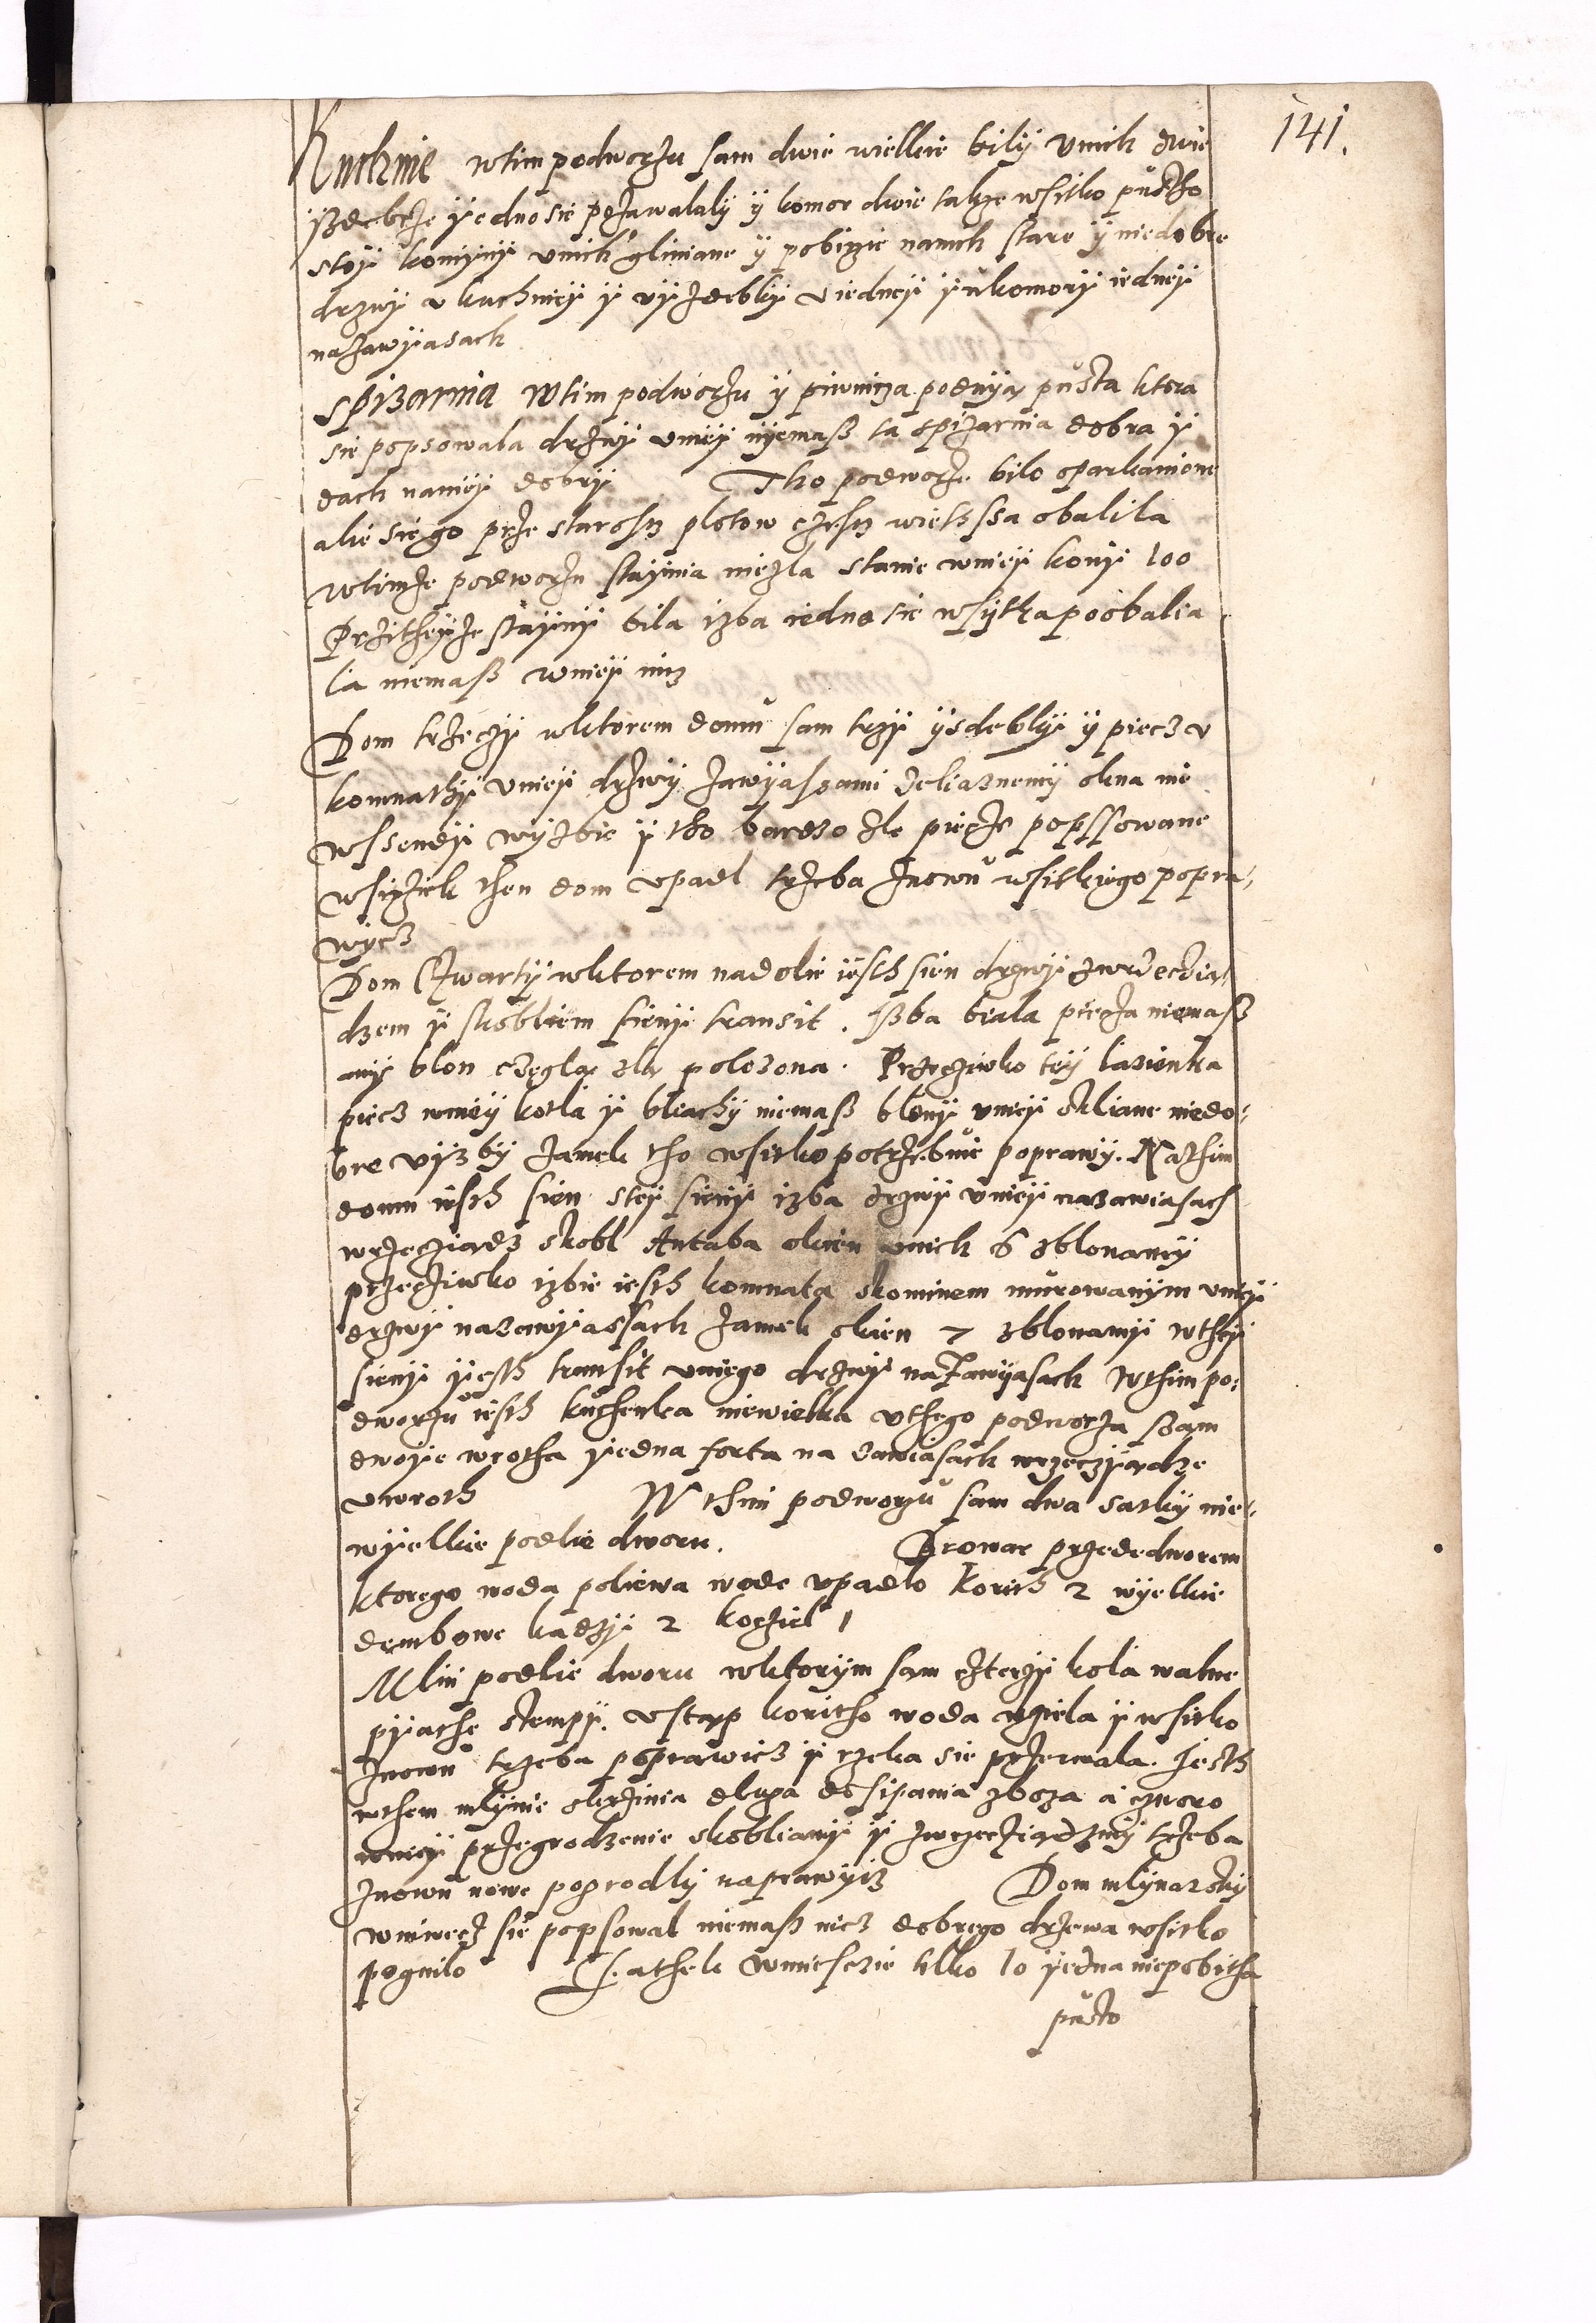 141.
Kuchnie wtim podworzu sam dwie wielkie bily unich dwie
iszdebcze yedno sie pozawalaly y komor dwie takze wsitko pusto
stoy kominy unich gliniane y pobiczie nanich stare y niedobre
drzwy u kuchniey y uyzdebky u iedney y ukomory iedney
nazawyasach
Spizarnia wtim podworzu y piwnicza podnya pusta ktora
sie popsowala drzwy uniey nyemasz ta spizarnia dobra y
dach naniey dobry Tho podworze bilo oparkanione
alie sie go prze starosz plotow czesz wietssa obalila
wtimze podworzu staynia niezla stanie wniey kony 100
Przitheyze stayny bila izba iedno sie wsytka poobalia
la niemasz wniey nicz
Dom trzeczy wktorem domu sam trzy ysdebky y piecz u
komnathy uniey drzwy zawyassami zeliaznemy okna nie
wssendy wyzbie y tho bardzo zle piecze popssowane
wsiziek then dom upadl trzeba znowu wsitkiego popra-
wycz
Dom Czwarty wktorem nadolie iesth sien drzwy zwrzeczia-
dzem y skobliem sieny transit. Iszba biala pieca niemasz
any blon czegla zle polozona. Przeciwko tey lazienka
piecz wniey kotla y bliachy niemasz blony uniey skliane niedo-
bre uyzby zamek tho wsitko potrzebuie poprawy. Nathim
domu iesth sien stey sieny izba drzwy uniey nazawiasach
wrzecziadz skobl Antaba okien unich 6 zblonamy
przecziwko izbie iesth komnata skominem murowanym uniey
drzwy nazawyassach zamek okien 7 zblonamy wthey
sieny yesth transit uniego drzwy nazawyasach Wthim po-
dworzu iesth kuchenka niewielka uthego podworza szam
dwoye wrotha yedna forta na zawiasach wrzeczyadze
uwroth Wthim podworzu sam dwa satky nie-
wyelkie podlie dworu. Browar przededworem
ktorego woda poliewa wode upadlo Korith 2 wyelkie
dembowe kadzy 2 kocziel 1
Mlin podlie dworu wktorym sam czterzy kola walne
pyathe stempy. Ustaxp koritho woda wziela y wsitko
znowu trzeba poprawicz y rzeka sie przerwala. Iesth
wthem mlynie skrzinia dluga do sipania zboza a czworo
wniey przegrodzenie skobliamy y zwrzecziadzmy trzeba
znowu nowe pogrodky naprawyiz Dom mlynarsky
wniwecz sie popsowal niemasz nicz dobrego drzewa wsitko
pognilo Jathek wmiesczie tilko 10 yedna niepobitha
pusto